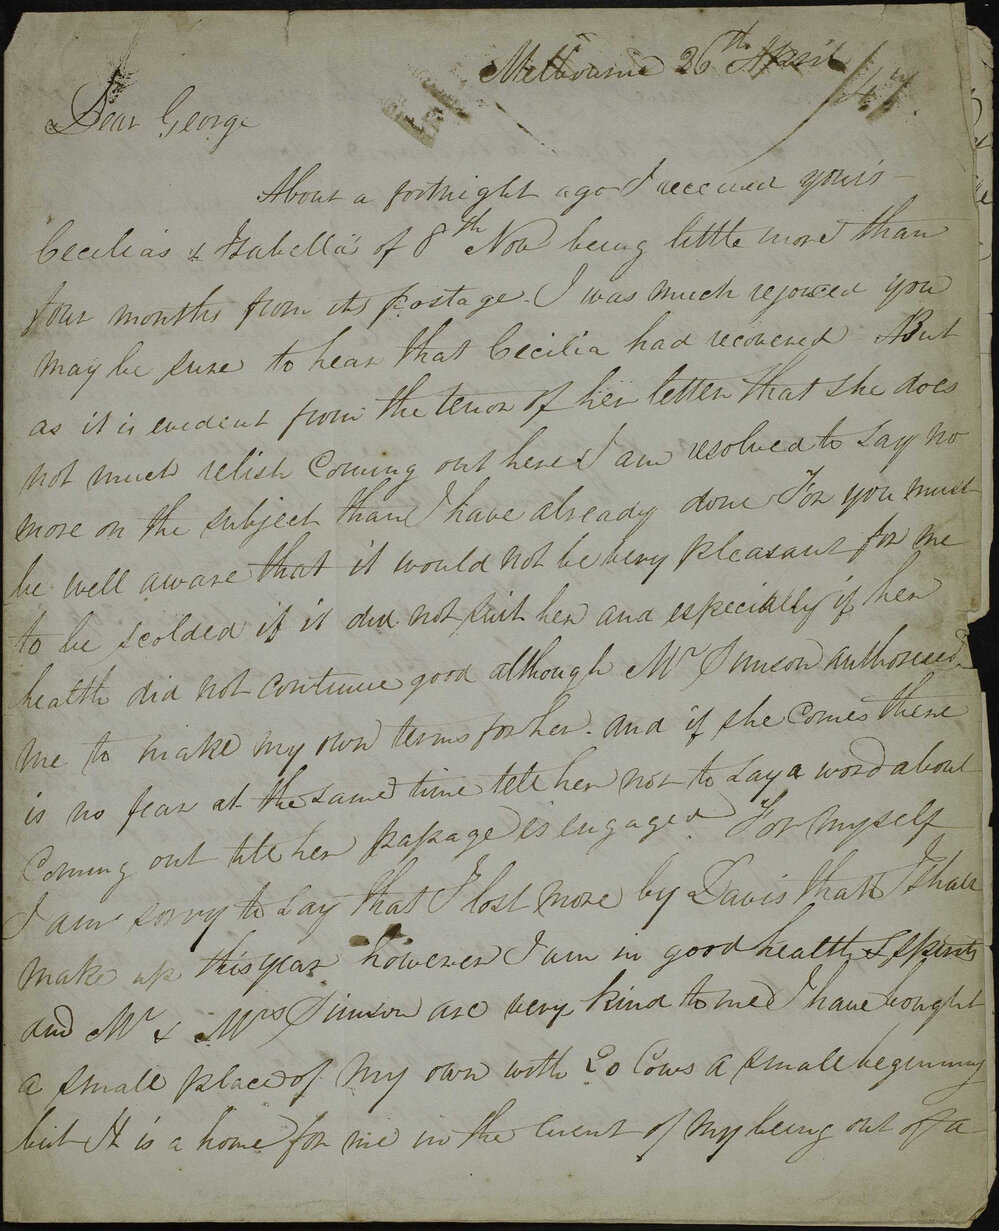 Melbourne 26th April /47
Dear George
About a fortnight ago I received yours
Cecilia's & Isabella's of 8th Nov being little more than
four months from its postage. I was much rejoiced you
may be sure to hear that Cecilia had recovered But
as it is evident from the tenor of her letter that she does
not much relish Coming out here I am resolved to say no
more on the subject than I have already done For you must
be well aware that it would not be very pleasant for me
to be scolded if it did not suit her and especially if her
health did not continue good although Mr Simson authorised
me to make my own terms for her. and if she comes there
is no fear at the same time tell her not to say a word about
Coming out till her passage is engaged For myself
I am sorry to say that I lost more by Davis than I shall
make up this year however I am in good health & spirits
and Mr & Mrs Simson are very kind to me I have bought
a small place of my own with 20 Cows a small beginning
but it is a home for me in the Event of my being out of a